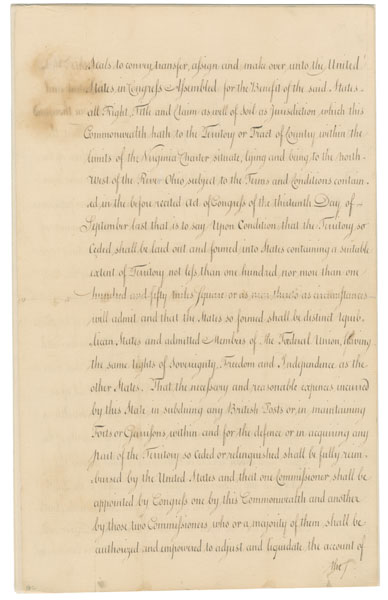 Seals to convey, transfer, assign and make over unto the United
States, in Congress Assembled for the Benefit of the said States
all Right, Title and Claim as well of Soil as Jurisdiction which this
Commonwealth hath to the Territory or Tract of Country within the
limits of the Virginia Charter situate, lying and being to the north-
West of the River Ohio, subject to the Terms and Conditions contain-
ed in the before recited Act of Congress of the thirteenth Day of
September last that is to say Upon Condition that the Territory so
Ceded shall be laid out and formed into States containing a suitable
extent of Territory not less than one hundred nor more than one
hundred and fifty Miles Square or as near thereto as circumstances
will admit and that the States so formed shall be distinct repub-
lican States and admitted Members of the Fœderal Union, having
the same rights of Sovereignty, Freedom and Independence as the
other States. That the necessary and reasonable expences incurred
by this State in subduing any British Posts or in maintaining
Forts or Garrisons within and for the defence or in acquiring any
part of the Territory so Ceded or relinquished shall be fully reim-
bursed by the United States and that one Commissioner shall be
appointed by Congress one by this Commonwealth and another
by those two Commissioners, who or a majority of them shall be
authorized and empowered to adjust and liquidate the account of
the